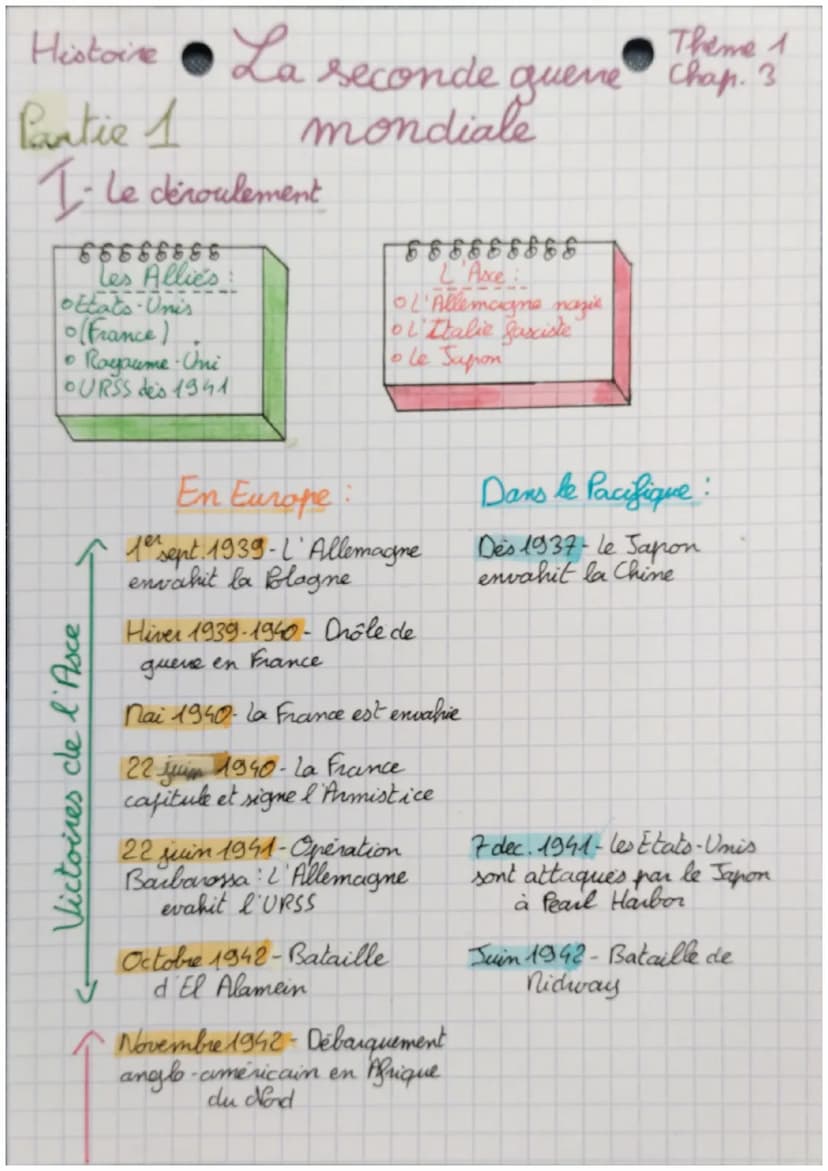 Histoire
La seconde guerre
mondiale
Thème 1
Chap. 3
Partie 1
I- Le déroulement
Les Alliés :
Etats-Unis
(France)
Royaume-Uni
URSS dès 1941
L'Asce :
L'Allemagne nazie
L'Italie fasciste
Le Japon
Victoires de l'Asce
En Europe :
1er sept. 1939 - L'Allemagne
envahit la Pologne
Hiver 1939-1940 - Drôle de
guerre en France
Mai 1940 - La France est envahie
22 juin 1940 - La France
capitule et signe l'Armistice
22 juin 1941 - Opération
Barbarossa : L'Allemagne
evahit l'URSS
Octobre 1942 - Bataille
d'El Alamein
Novembre 1942 - Débarquement
anglo-américain en Afrique
du Nord
Dans le Pacifique :
Dès 1937 - Le Japon
envahit la Chine
7 dec. 1941 - Les Etats-Unis
sont attaqués par le Japon
à Pearl Harbor
Juin 1942 - Bataille de
Midway